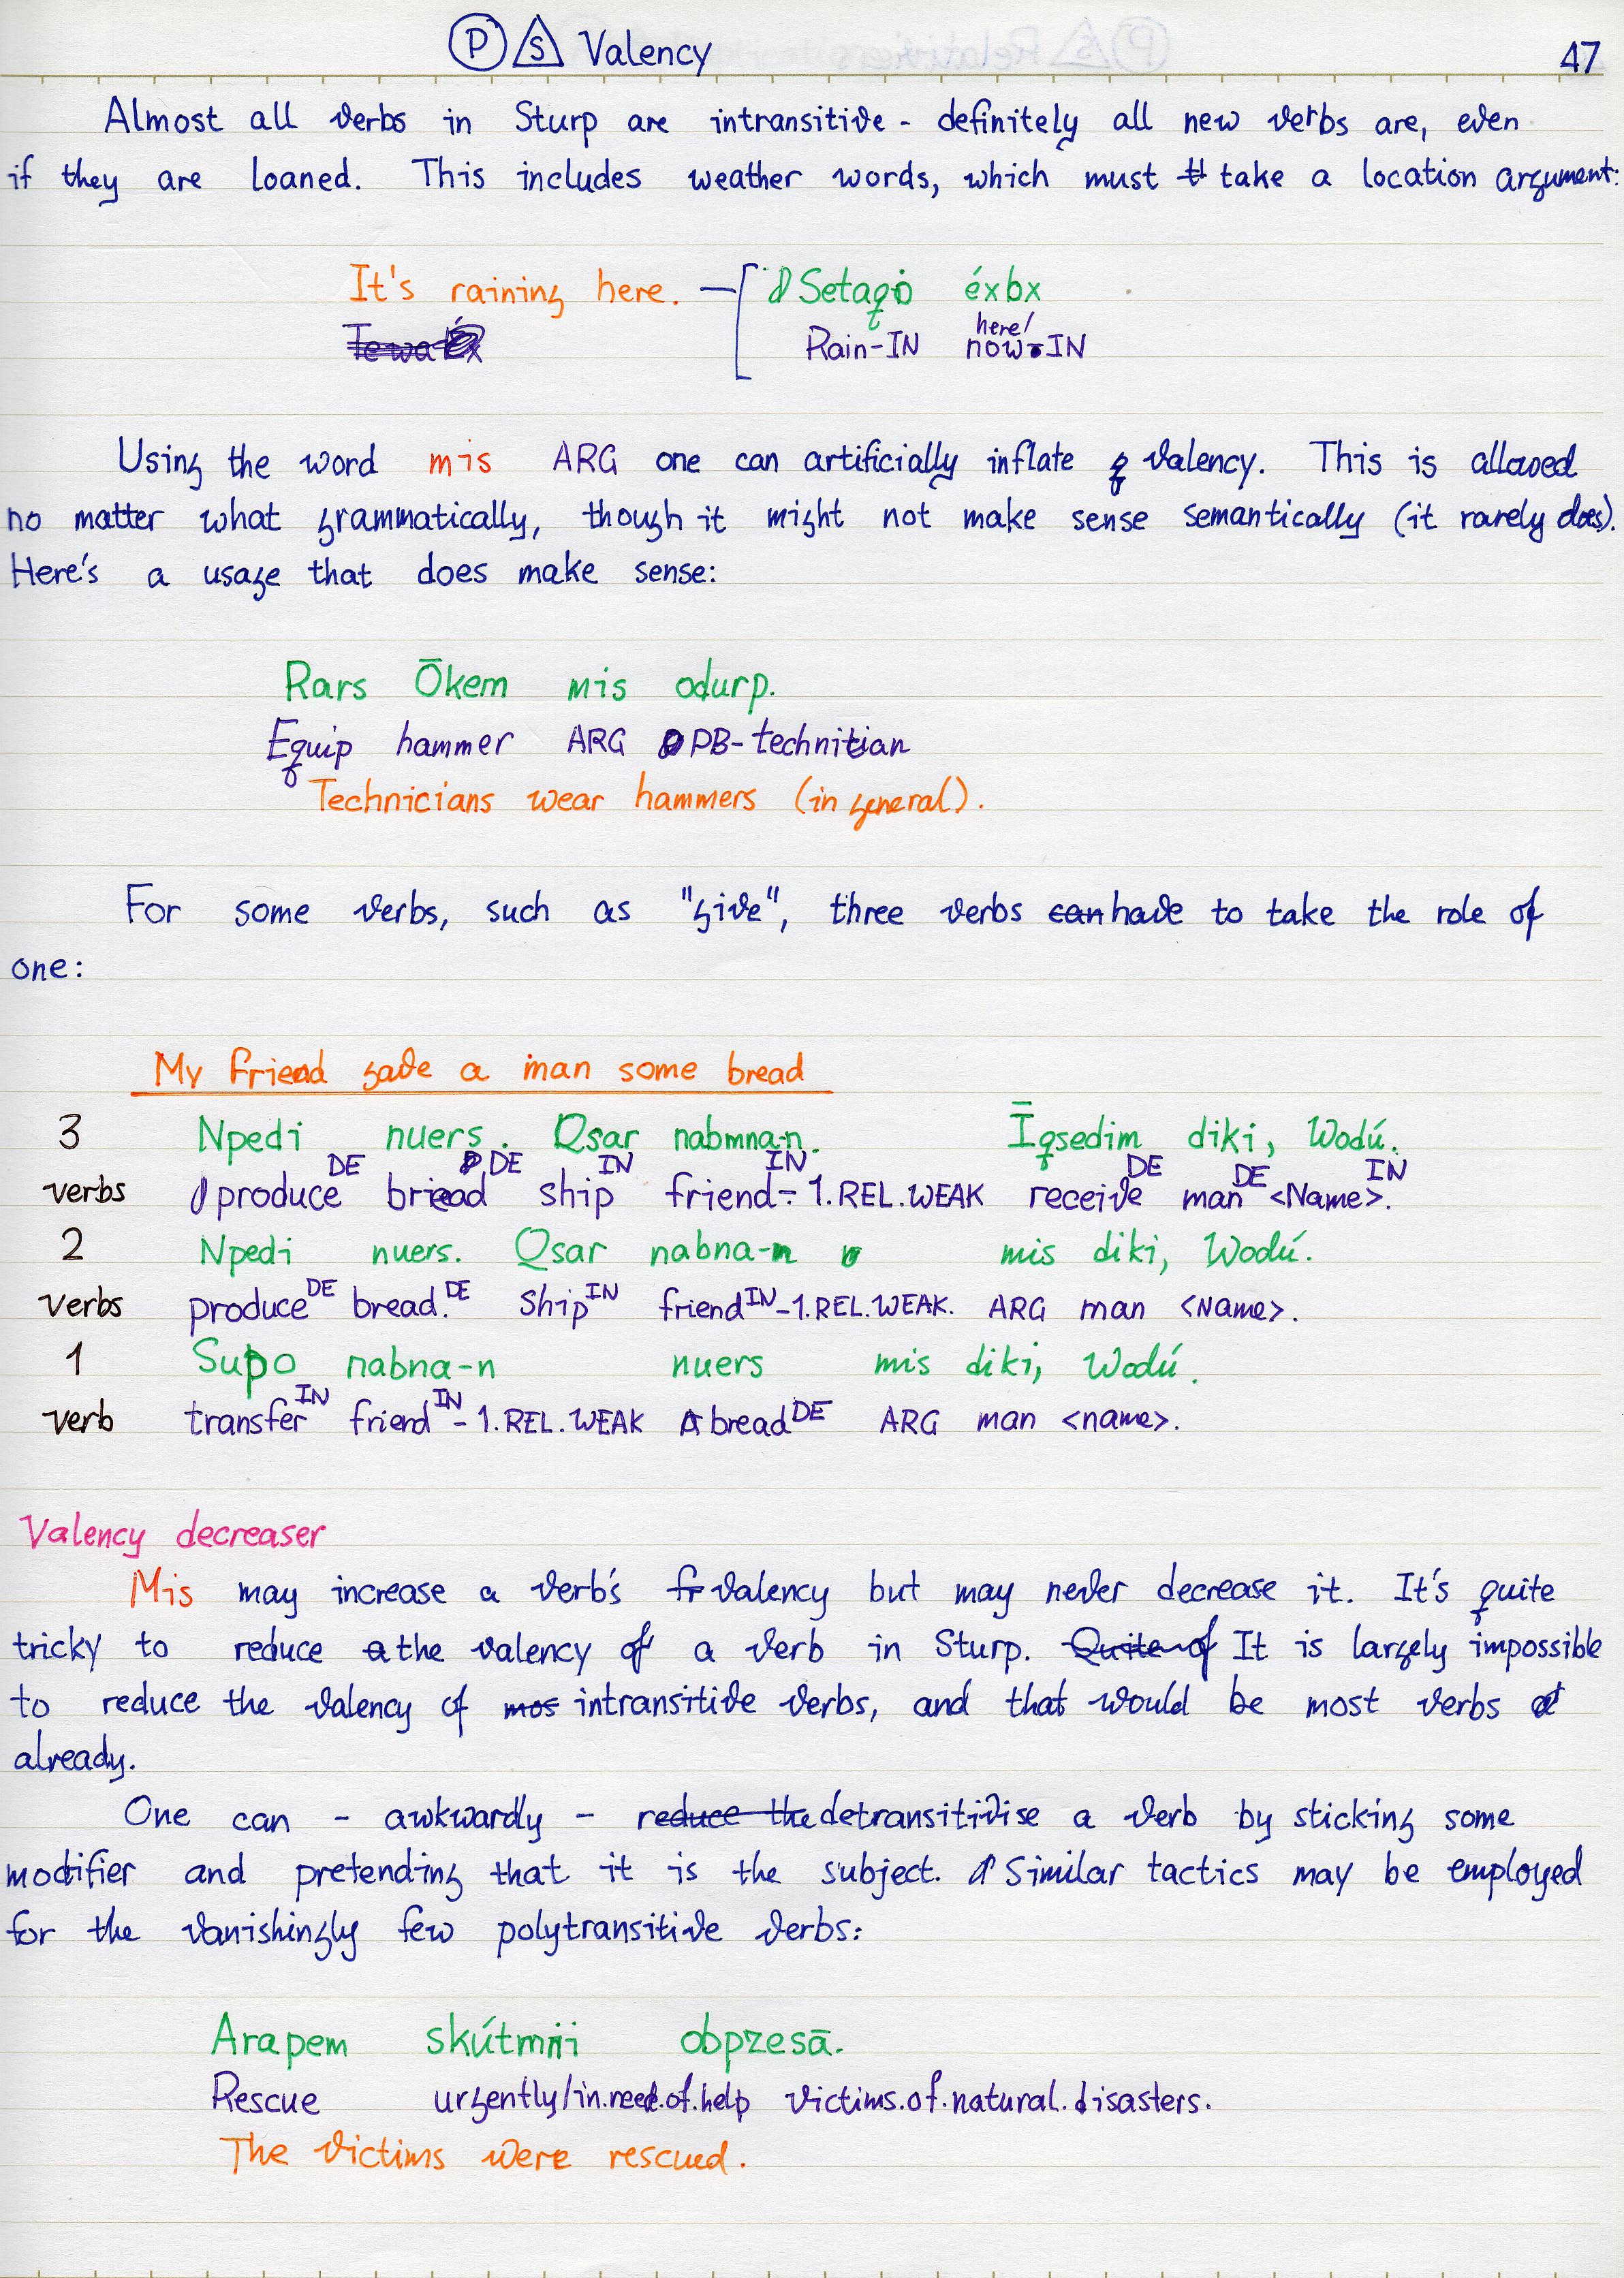 P S Valency 47
Almost all verbs in Sturp are intransitive - definitely all new verbs are, even
if they are loaned. This includes weather words, which must take a location argument:
It's raining here. Setaqo éxbx
Rain-IN here/now-IN
Using the word mis ARG one can artificially inflate valency. This is allowed
no matter what grammatically, though it might not make sense semantically (it rarely does).
Here's a usage that does make sense:
Rars Ōkem mis odurp.
Equip hammer ARG PB-technitian
Technicians wear hammers (in general).
For some verbs, such as "give", three verbs can have to take the role of
one:
My friend gave a man some bread
3 Npedi nuers. Qsar nabmna-n. Īqsedim diki, Wodú.
verbs produce DE bread DE ship IN friend IN - 1.REL.WEAK receive DE man DE <Name> IN.
2 Npedi nuers. Qsar nabna-n mis diki, Wodú.
verbs produce DE bread. DE ship IN friend IN -1.REL.WEAK. ARG man <Name>.
1 Supo nabna-n nuers mis diki, Wodú.
verb transfer IN friend IN - 1.REL.WEAK bread DE ARG man <name>.
Valency decreaser
Mis may increase a verb's valency but may never decrease it. It's quite
tricky to reduce the valency of a verb in Sturp. Quite of It is largely impossible
to reduce the valency of mos intransitive verbs, and that would be most verbs
already.
One can - awkwardly - reduce the detransitivise a verb by sticking some
modifier and pretending that it is the subject. Similar tactics may be employed
for the vanishingly few polytransitive verbs:
Arapem skútmii obpzesā.
Rescue urgently/in.need.of.help victims.of.natural.disasters.
The victims were rescued.